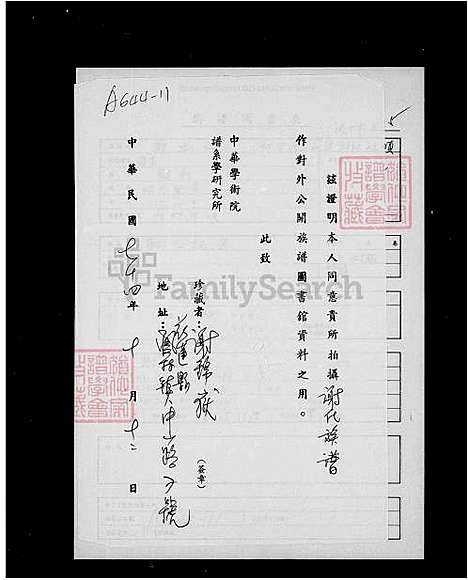 A644-11
茲證明本人同意貴所拍攝謝氏族譜
作對外公開族譜圖書館資料之用。
此致
中華學術院
譜系學研究所
珍藏者：謝錦嶽（簽章）
地址：花蓮縣鳳林鎮中山路 號
中華民國七十四年十月十二日
FamilySearch